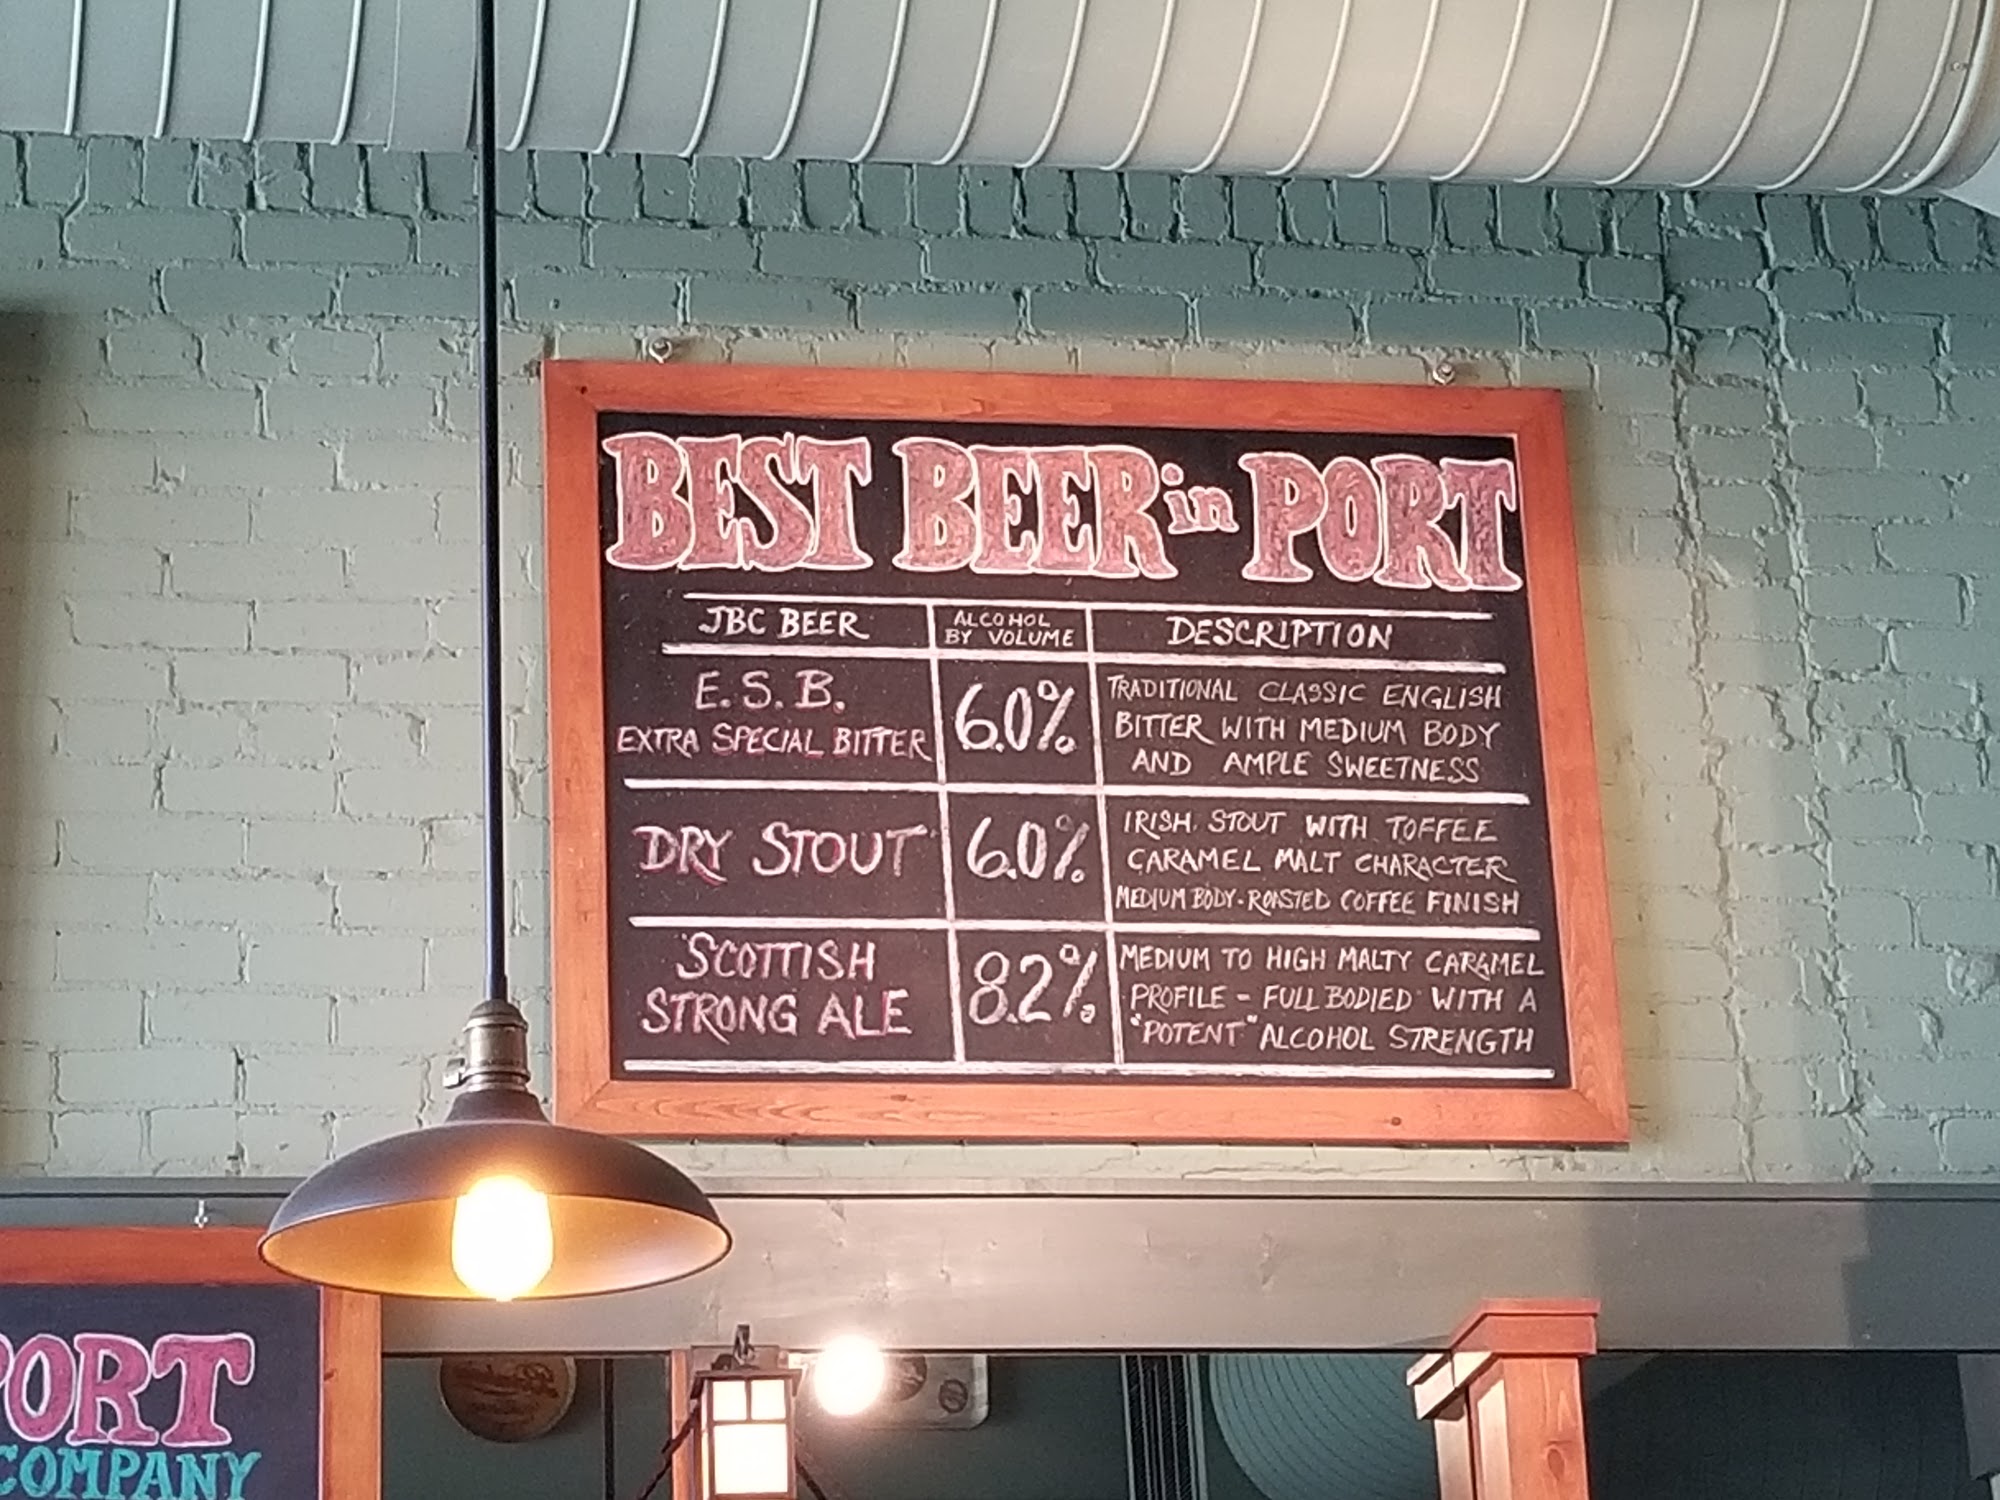 BEST BEER in PORT
JBC BEER
ALCOHOL
BY VOLUME
DESCRIPTION
E.S.B.
EXTRA SPECIAL BITTER
6.0%
TRADITIONAL CLASSIC ENGLISH
BITTER WITH MEDIUM BODY
AND AMPLE SWEETNESS
DRY STOUT
6.0%
IRISH STOUT WITH TOFFEE
CARAMEL MALT CHARACTER
MEDIUM BODY - ROASTED COFFEE FINISH
SCOTTISH
STRONG ALE
8.2%
MEDIUM TO HIGH MALTY CARAMEL
PROFILE - FULL BODIED WITH A
"POTENT" ALCOHOL STRENGTH
PORT
COMPANY